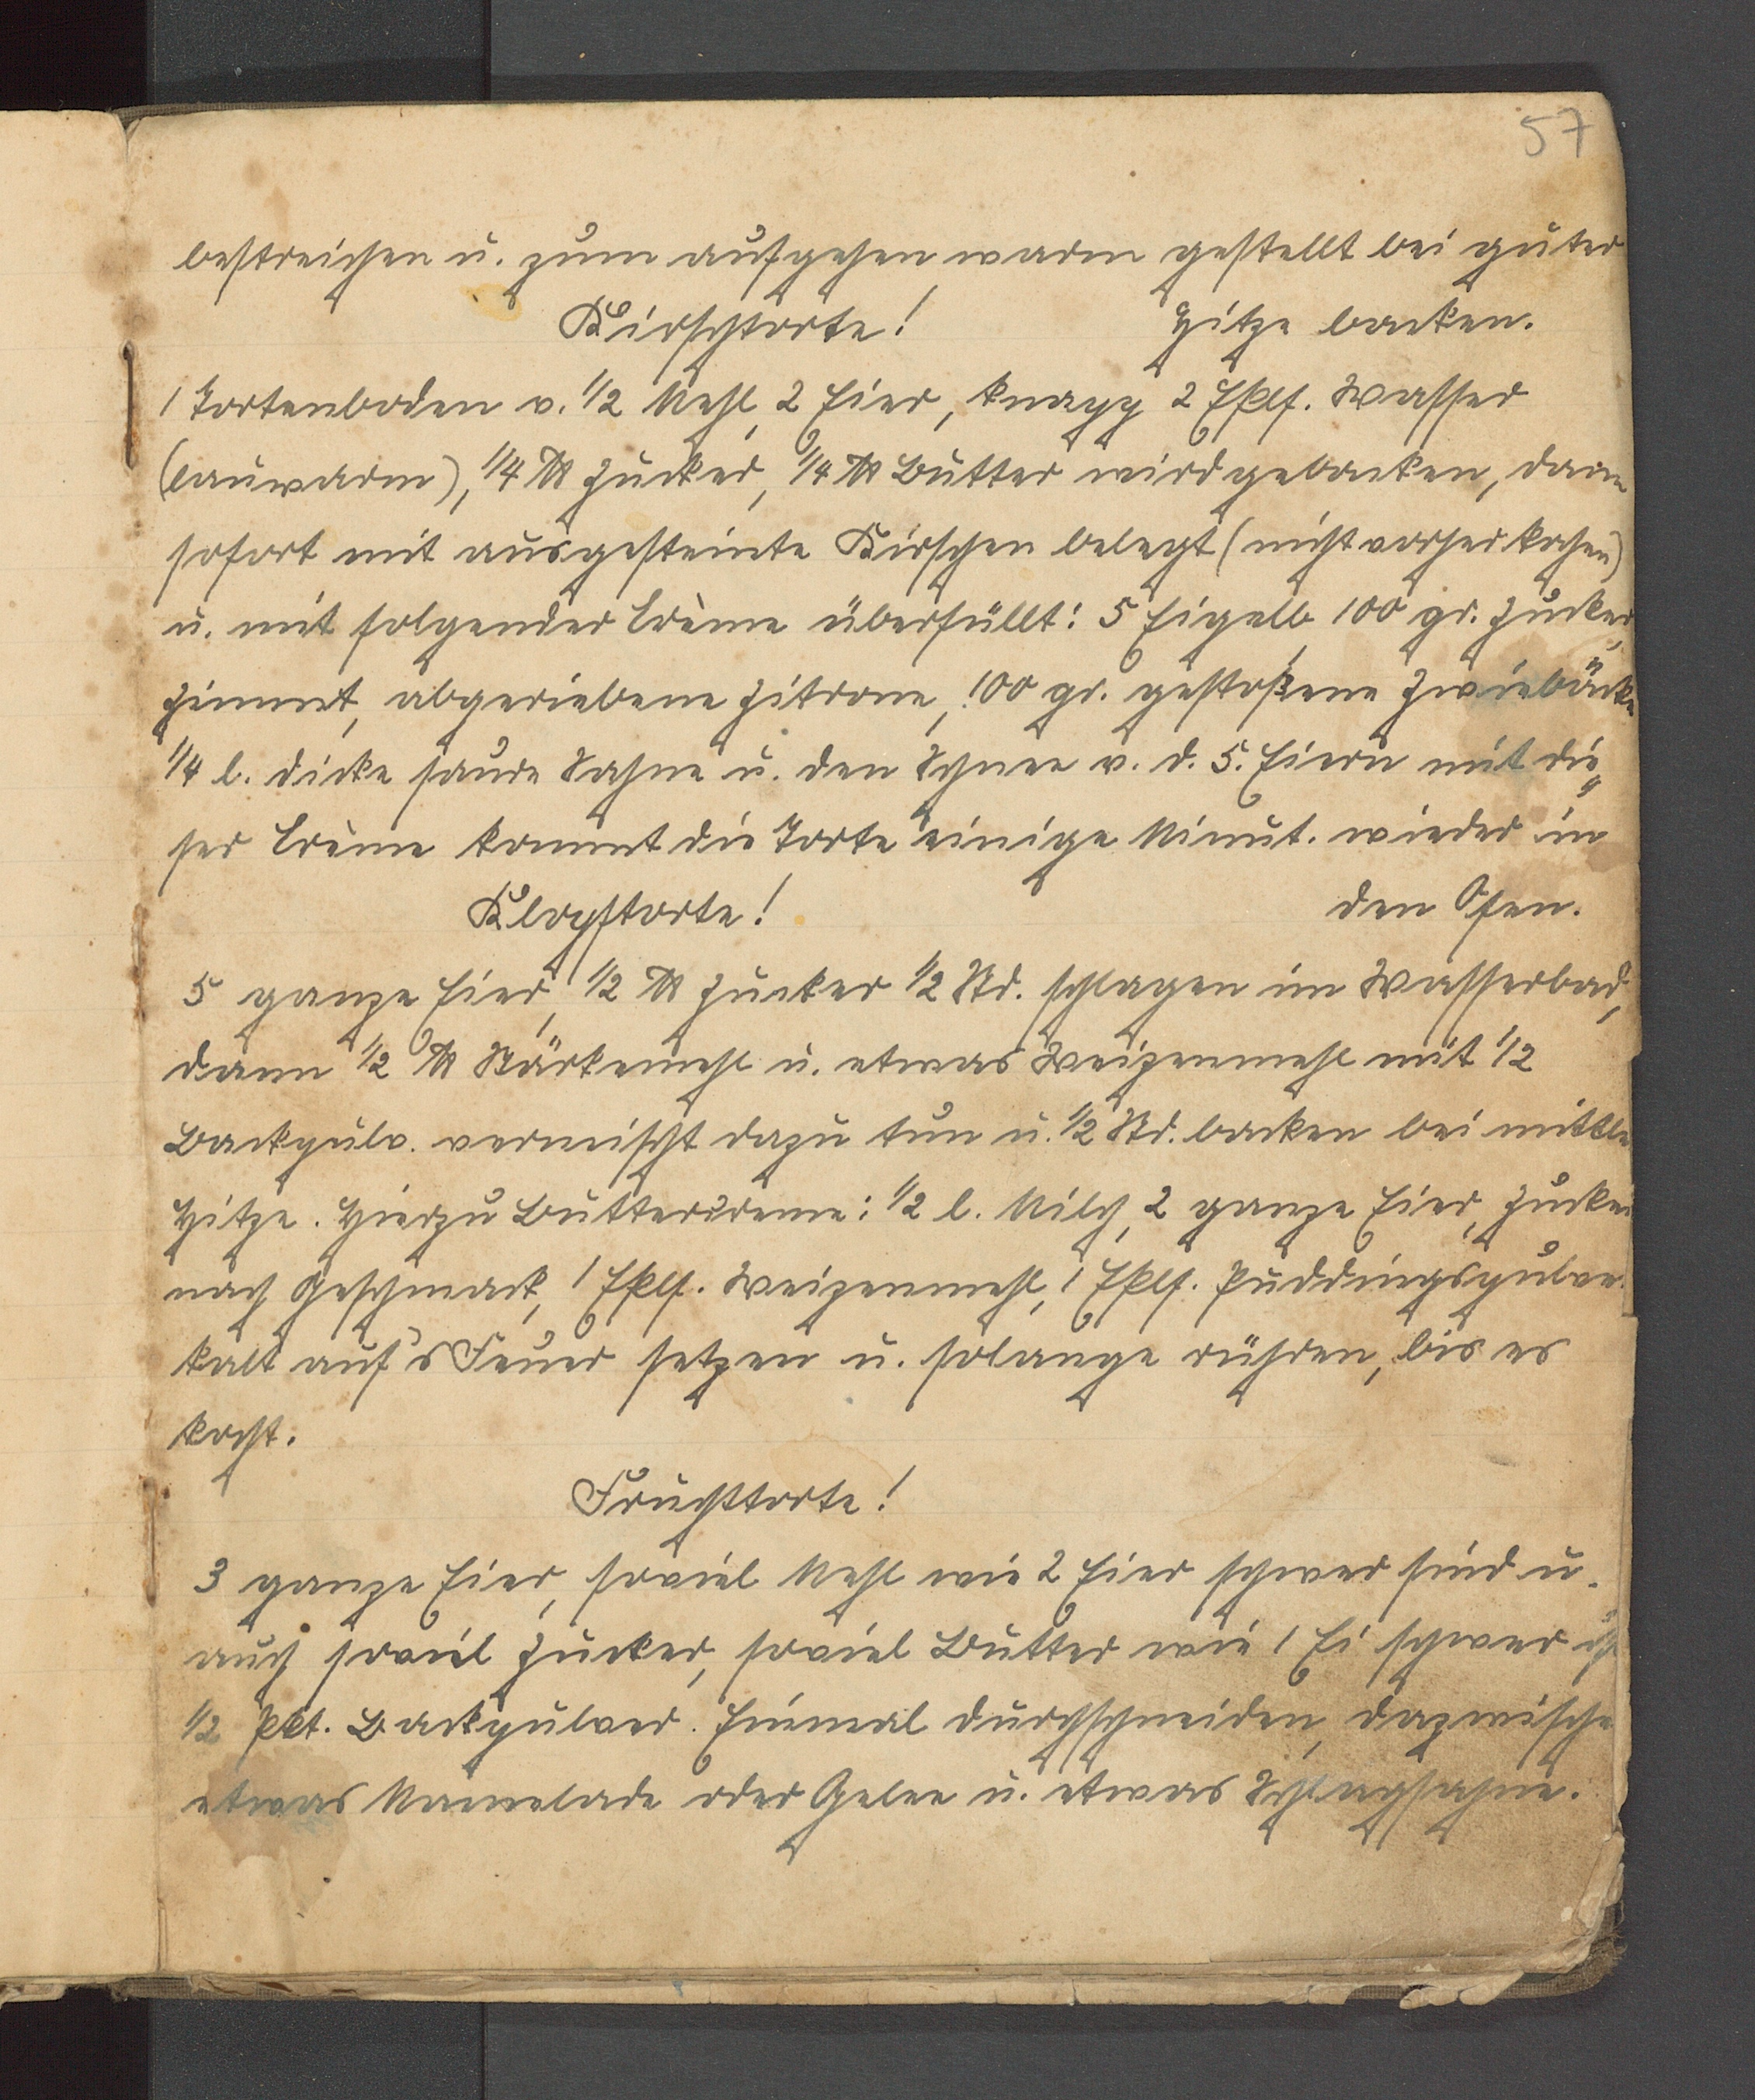 57
bestreichen u. zum aufgehen warm gestellt bei guter
Kirschtorte! Hitze backen.
1 Tortenboden v. 1/2 Mehl, 2 Eier, knapp 2 Eßlf. Wasser
(lauwarm), 1/4 ℔ Zucker, 1/4 ℔ Butter wird gebacken, dann
sofort mit ausgesteinte Kirschen belegt (nicht vorher kochen)
u. mit folgender Crème überfüllt: 5 Eigelb, 100 gr. Zucker,
Zimmt, abgeriebene Zitrone, 100 gr. gestoßene Zwiebäcke
1/4 l. dicke saure Sahne u. den Schnee v. d. 5. Eiern mit die„
ser Crème kommt die Torte einige Minut. wieder in
Klopftorte! den Ofen.
5 ganze Eier, 1/2 ℔ Zucker 1/2 Std. schlagen im Wasserbad,
dann 1/2 ℔ Stärkemehl u. etwas Weizenmehl mit 1/2
Backpulv. vermischt dazu tun u. 1/2 Std. backen bei mittle
Hitze. Hierzu Buttercreme: 1/2 l. Milch, 2 ganze Eier, Zucker
nach Geschmack, 1 Eßlf. Weizenmehl, 1 Eßlf. Puddingspulve
kalt auf's Feuer setzen u. solange rühren, bis es
kocht.
Fruchttorte!
3 ganze Eier, soviel Mehl wie 2 Eier schwer sind u.
auch soviel Zucker, soviel Butter wie 1 Ei schwer ist
1/2 Pkt. Backpulver. Einmal durchschneiden, dazwische
etwas Mamelade oder Gelee u. etwas Schlagsahne.